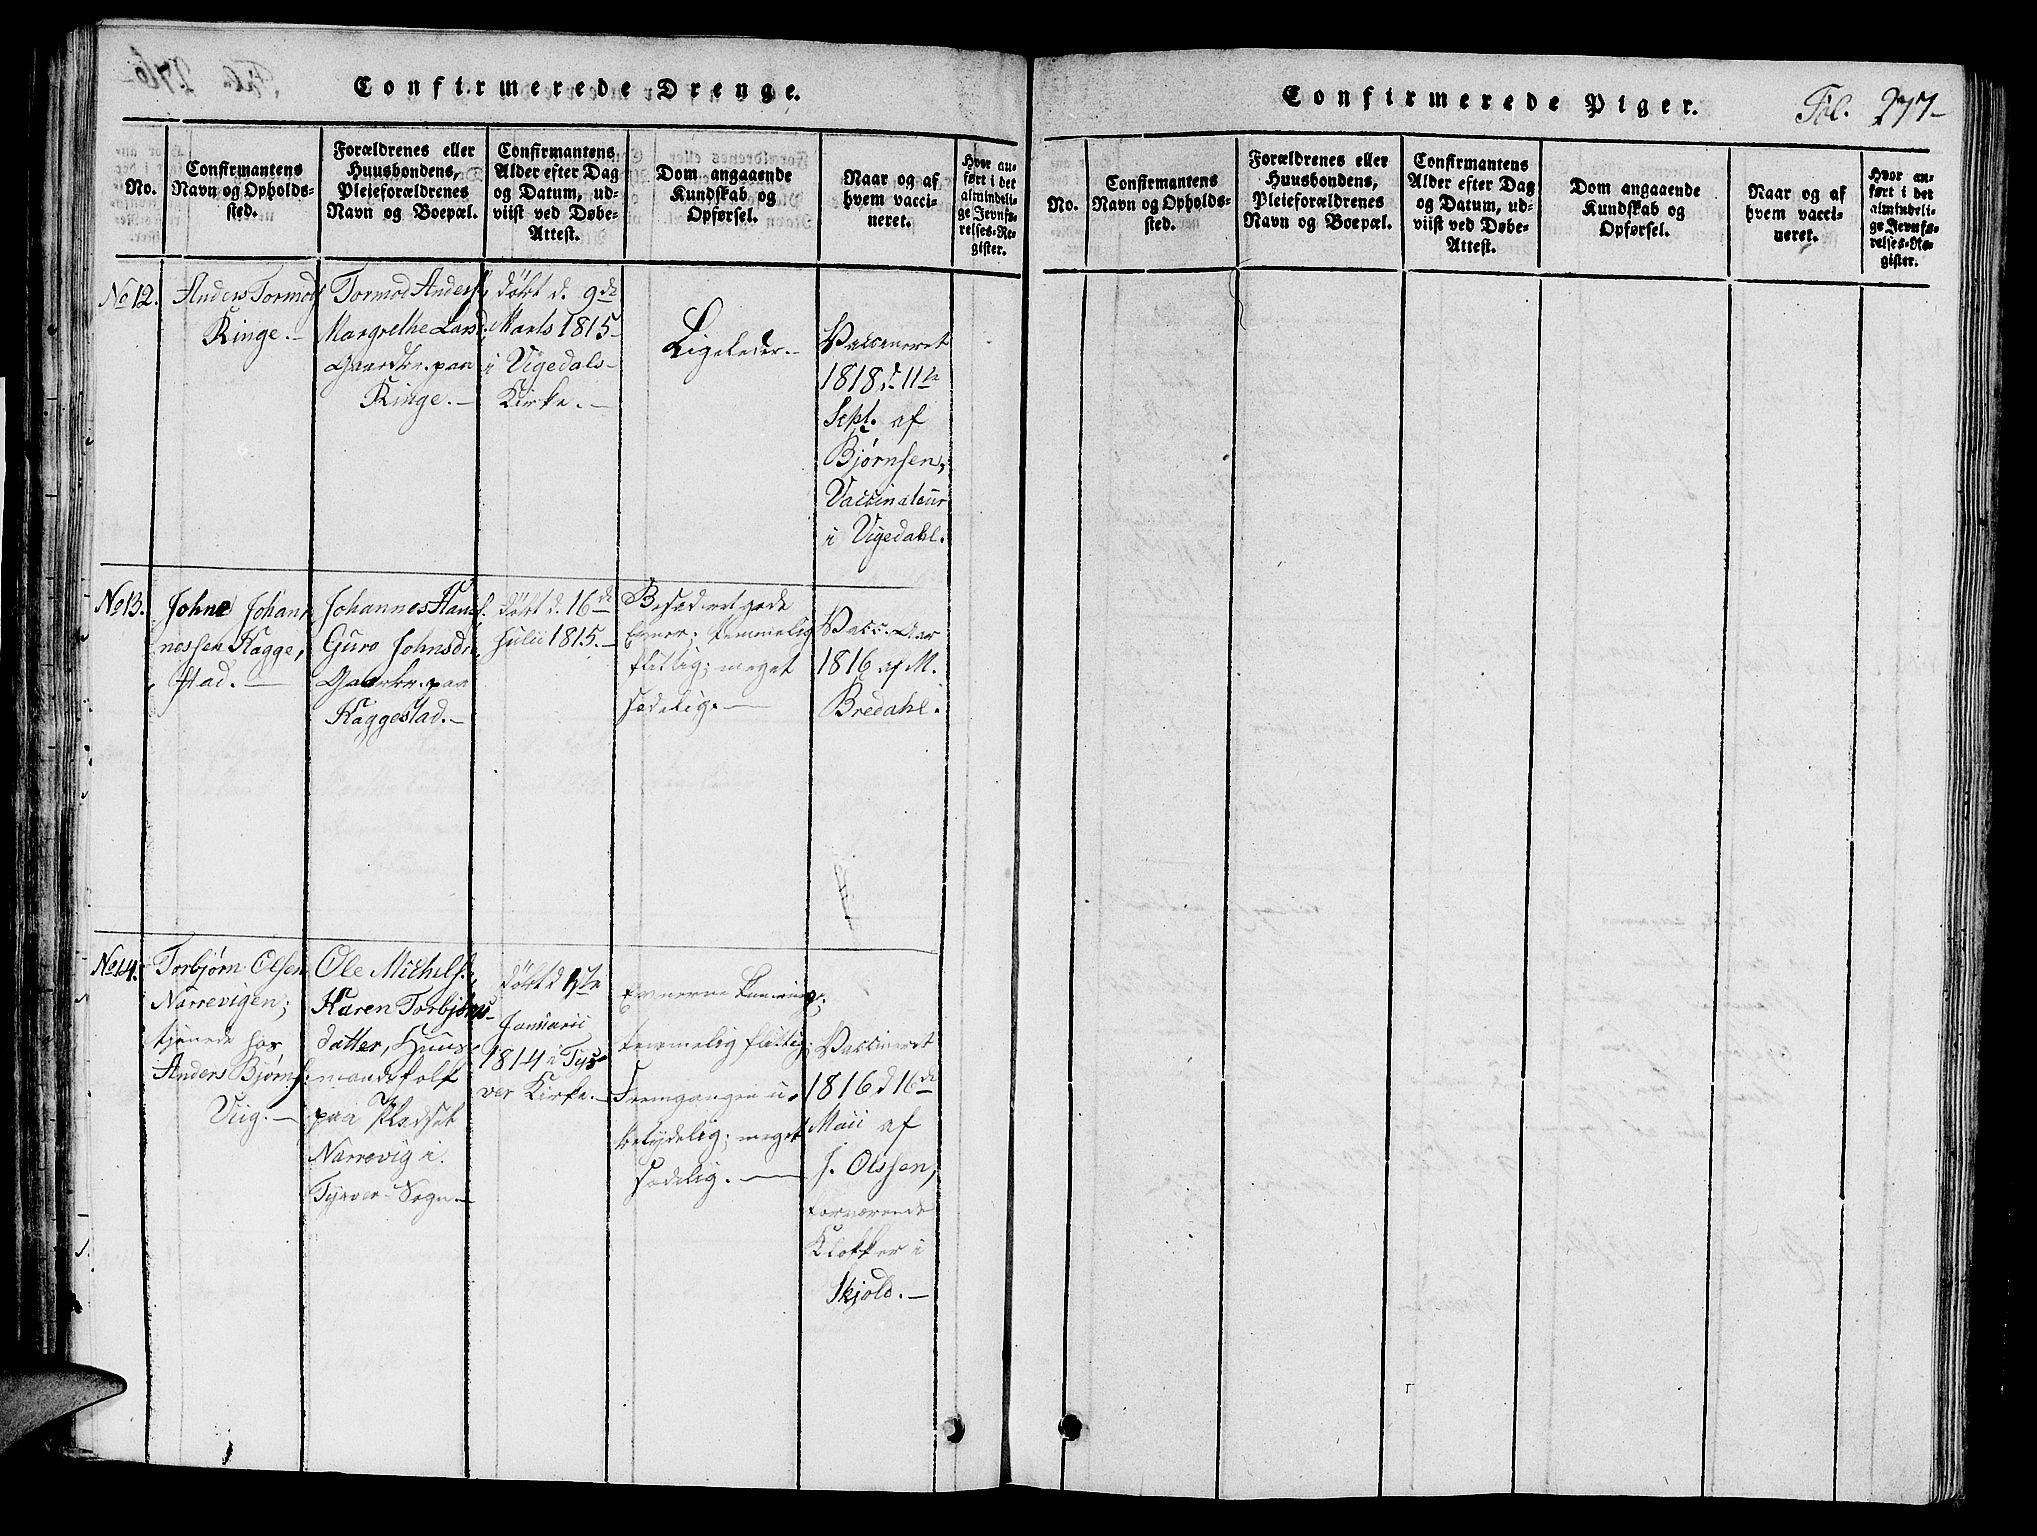 Confirmerede Drenge.
No.
Confirmantens
Navn og Opholds-
sted.
Forældrenes eller
Huusbondens,
Pleieforældrenes
Navn og Boepæl.
Confirmantens
Alder efter Dag
og Datum, ud-
viist ved Døbe-
Attest.
Dom angaaende
Kundskab og
Opførsel.
Naar og af
hvem vacci-
neret.
Hvor an-
ført i det
almindeli-
ge Jevnfø-
relses-Re-
gister.
No 12.
Anders Tormods
Ringe.-
Tormod Anders.
Margrethe Larsd.
Gaardbr. paa
Ringe.-
døbt d. 9de
Marts 1815
i Vigedals-
Kirke.-
Ligeledes.-
Vaccineret
1818 d. 11te
Sept. af
Bjørnsen,
Vaccinateur
i Vigedahl.
No 13.
Johne Johan-
nessen Hagge-
stad.-
Johannes Hans.
Guro Johnsdr.
Gaardbr. paa
Haggestad.-
døbt d. 16de
Julii 1815.-
Besad ret gode
Evner; temmelig
flittig; meget
sædelig.-
Vacc. Aar
1816 af M.
Bredahl.
No 14.
Torbjørn Olsen
Narrevigen;
tjenede hos
Anders Bjørns.
Viig.-
Ole Michels.
Karen Torbjørns-
datter, Huus-
mandsfolk
paa Pladset
Narrevig i
Tysver Sogn.-
døbt d.
Januarii
1814 i Tys-
ver Kirke.-
Evnerne kun ringe;
temmelig flittig;
Fremgangen u-
betydelig; meget
sædelig.-
Vaccineret
1816 d 16de
Maii af
J. Olssen,
forværende
Klokker i
Skjold.-
Confirmerede Piger.
Fol. 277-
No.
Confirmantens
Navn og Opholds-
sted.
Forældrenes eller
Huusbondens,
Pleieforældrenes
Navn og Boepæl.
Confirmantens
Alder efter Dag
og Datum, ud-
viist ved Døbe-
Attest.
Dom angaaende
Kundskab og
Opførsel.
Naar og af
hvem vacci-
neret.
Hvor an-
ført i det
almindeli-
ge Jevnfø-
relses-Re-
gister.